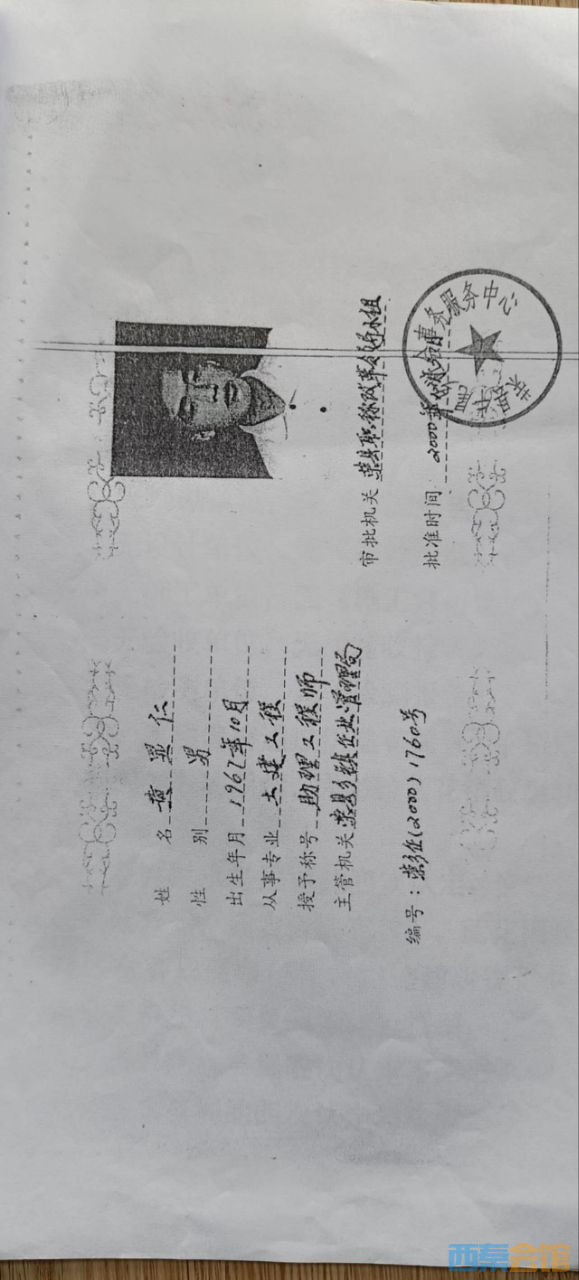 姓名 黄显仁
性别 男
出生年月 1967年10月
从事专业 土建工程
授予称号 助理工程师
主管机关 荣县乡镇企业管理局
编号：荣乡企(2000)1760号
审批机关 荣县职称改革领导小组
批准时间 2000年
事务服务中心
荣县
西秦会馆